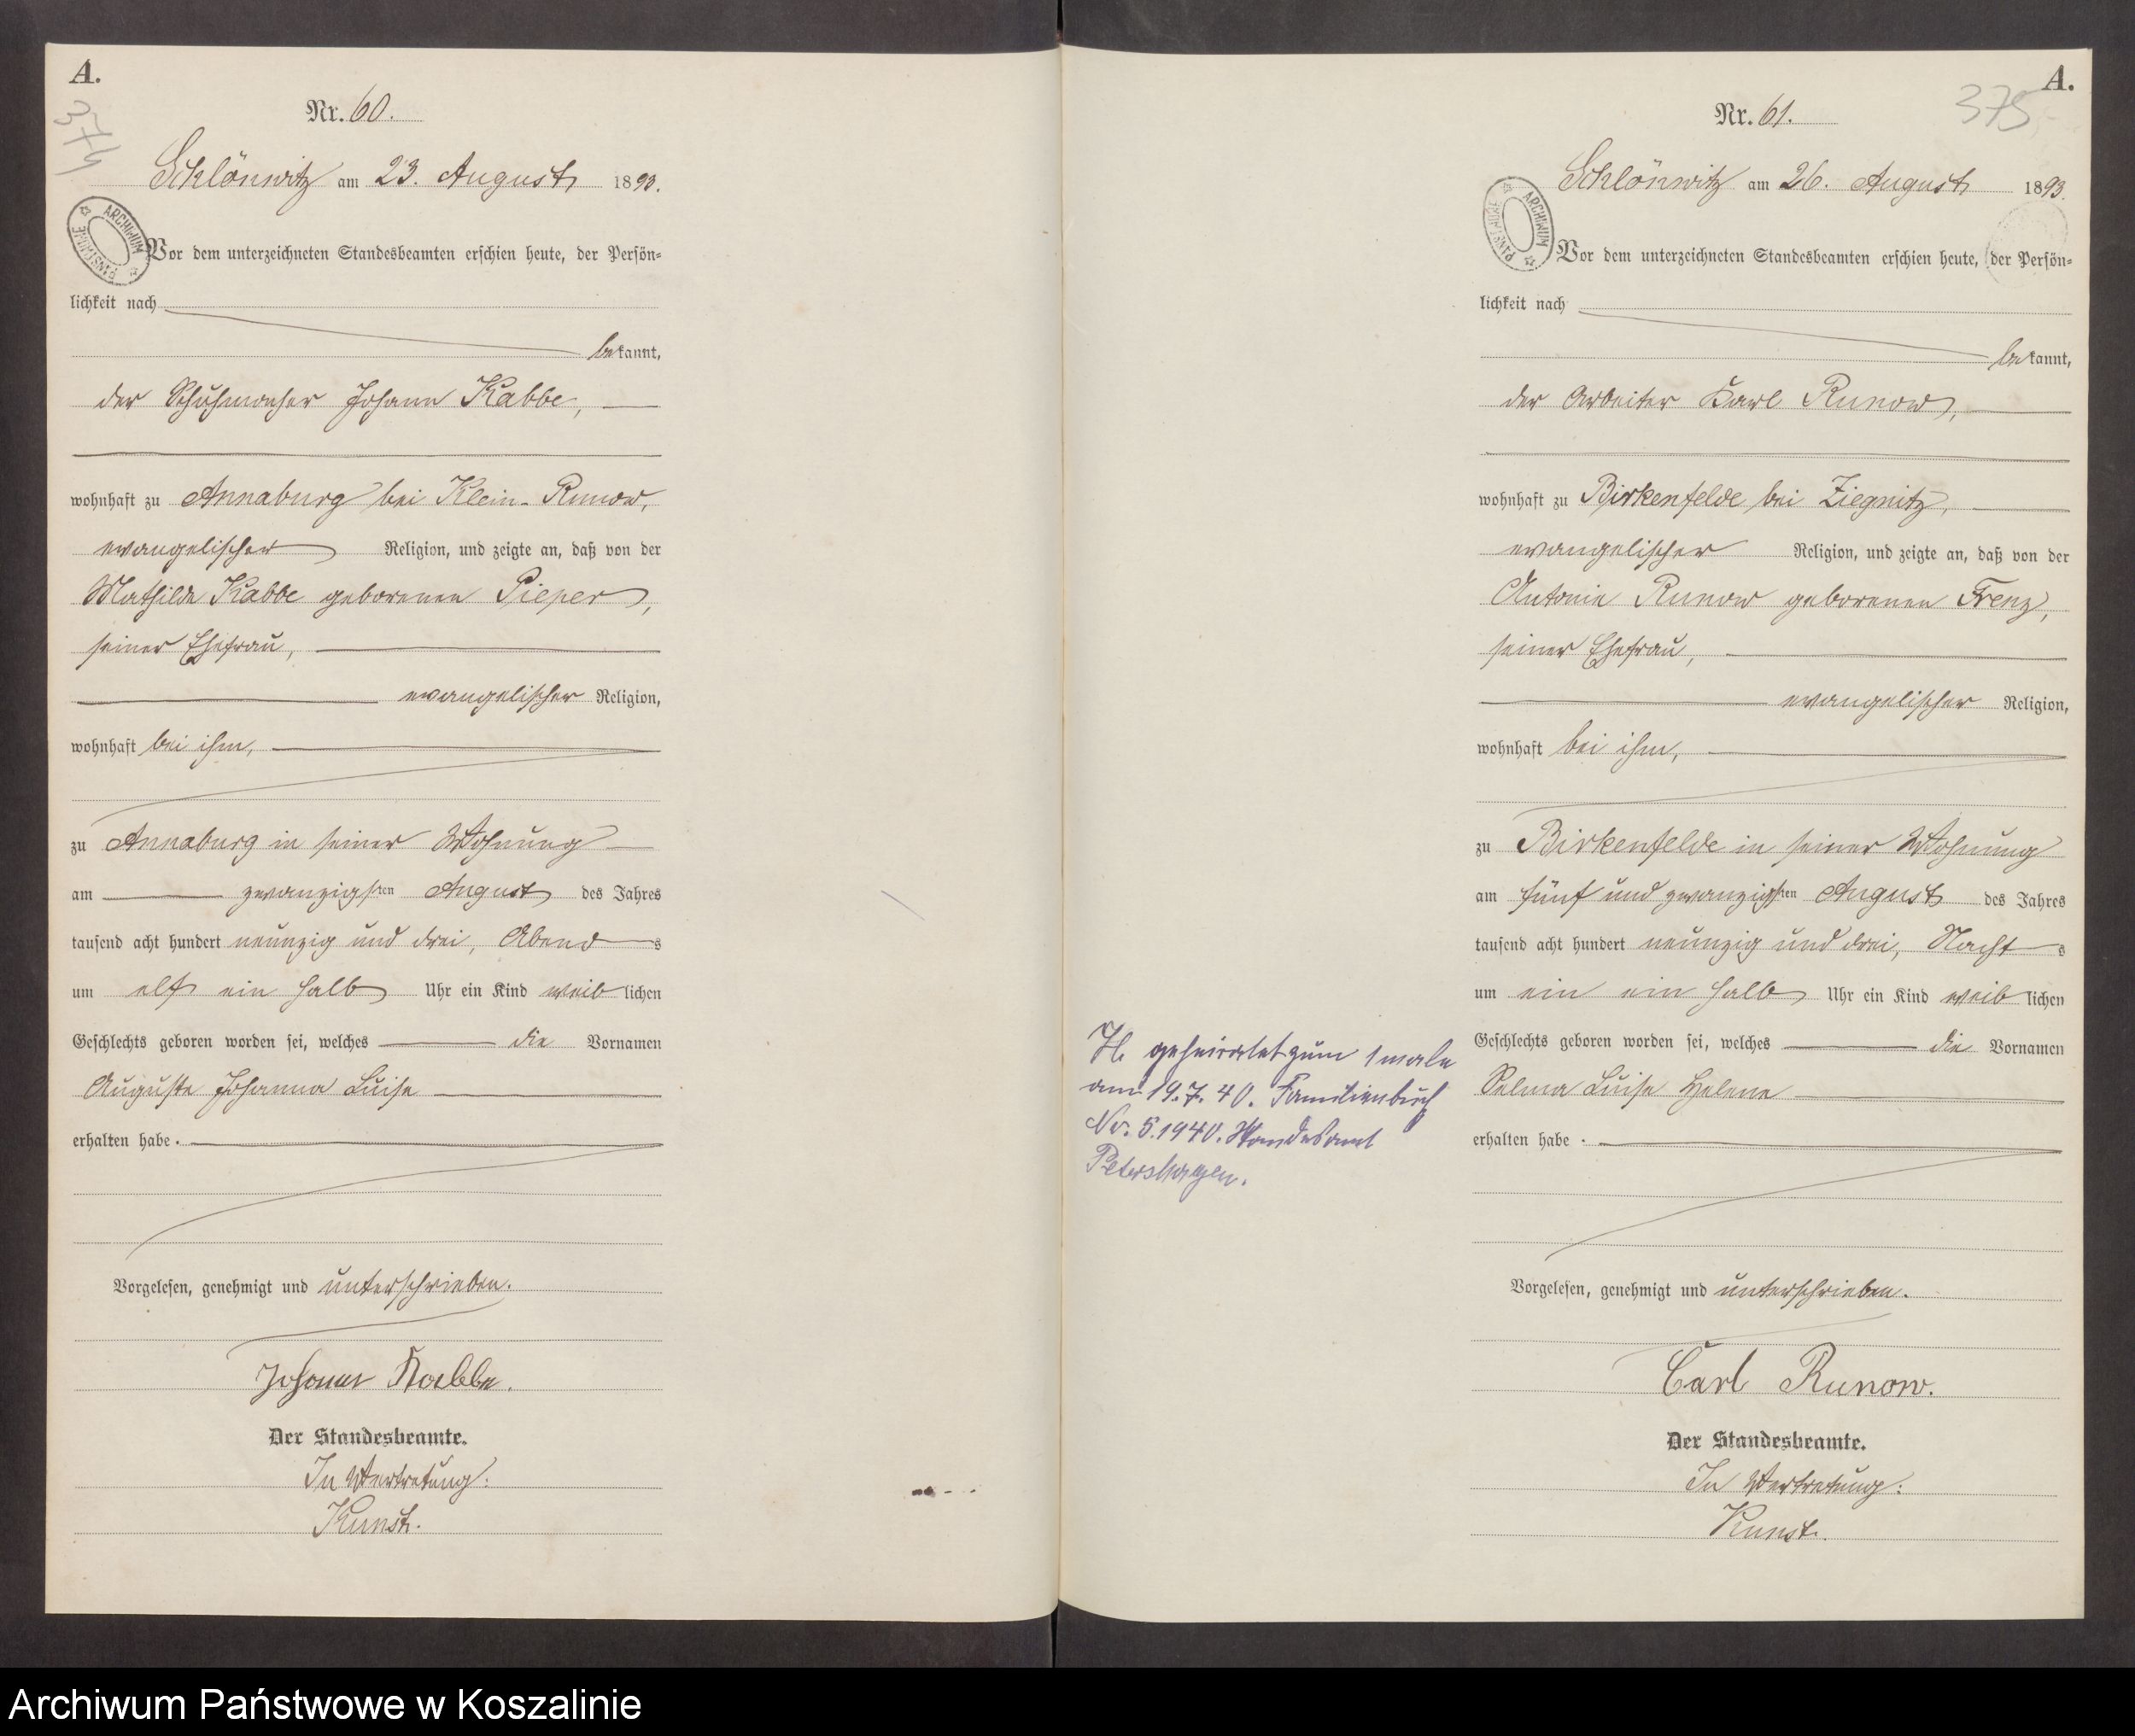 A.
374
Nr. 60.
Schlönwitz am 23. August 1893.
ARCHIWUM PAŃSTWOWE
Vor dem unterzeichneten Standesbeamten erschien heute, der Persön-
lichkeit nach
bekannt,
der Schuhmacher Johann Kabbe,
wohnhaft zu Annaburg bei Klein-Runow,
evangelischer Religion, und zeigte an, daß von der
Mathilde Kabbe geborenen Pieper,
seiner Ehefrau,
evangelischer Religion,
wohnhaft bei ihm,
zu Annaburg in seiner Wohnung
am zwanzigsten August des Jahres
tausend acht hundert neunzig und drei, Abends
um elf ein halb Uhr ein Kind weiblichen
Geschlechts geboren worden sei, welches die Vornamen
Auguste Johanna Luise
erhalten habe.
Vorgelesen, genehmigt und unterschrieben.
Johann Kabbe.
Der Standesbeamte.
In Vertretung:
Kunst.
A.
375
Nr. 61.
Schlönwitz am 26. August 1893.
ARCHIWUM PAŃSTWOWE
Vor dem unterzeichneten Standesbeamten erschien heute, der Persön-
lichkeit nach
bekannt,
der Arbeiter Karl Runow,
wohnhaft zu Birkenfelde bei Ziegnitz,
evangelischer Religion, und zeigte an, daß von der
Antonie Runow geborenen Frenz,
seiner Ehefrau,
evangelischer Religion,
wohnhaft bei ihm,
zu Birkenfelde in seiner Wohnung
am fünf und zwanzigsten August des Jahres
tausend acht hundert neunzig und drei, Nachts
um ein ein halb Uhr ein Kind weiblichen
Geschlechts geboren worden sei, welches die Vornamen
Selma Luise Helene
erhalten habe.
H. geheiratet zum 1 male
am 19.7.40. Familienbuch
No. 5.1940. Standesamt
Petershagen.
Vorgelesen, genehmigt und unterschrieben.
Carl Runow.
Der Standesbeamte.
In Vertretung:
Kunst.
Archiwum Państwowe w Koszalinie